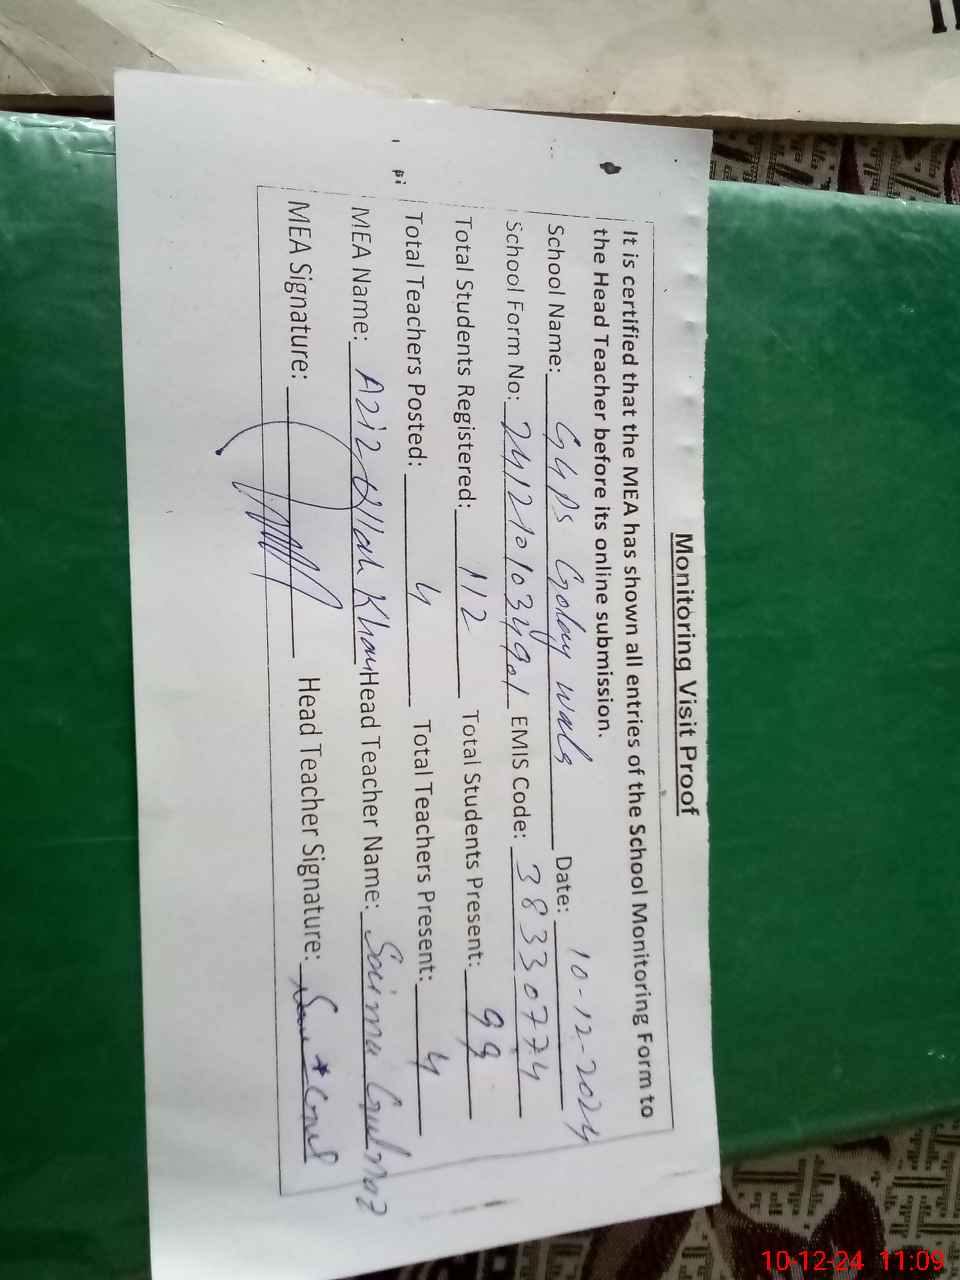 Monitoring Visit Proof
It is certified that the MEA has shown all entries of the School Monitoring Form to
the Head Teacher before its online submission.
School Name: GGPS Golay wala Date: 10-12-2024
School Form No: 2412101034901 EMIS Code: 38330774
Total Students Registered: 112 Total Students Present: 99
Total Teachers Posted: 4 Total Teachers Present: 4
MEA Name: Aziz Ullah Khan Head Teacher Name: Saima Gulnaz
MEA Signature: Head Teacher Signature:
10-12-24 11:09